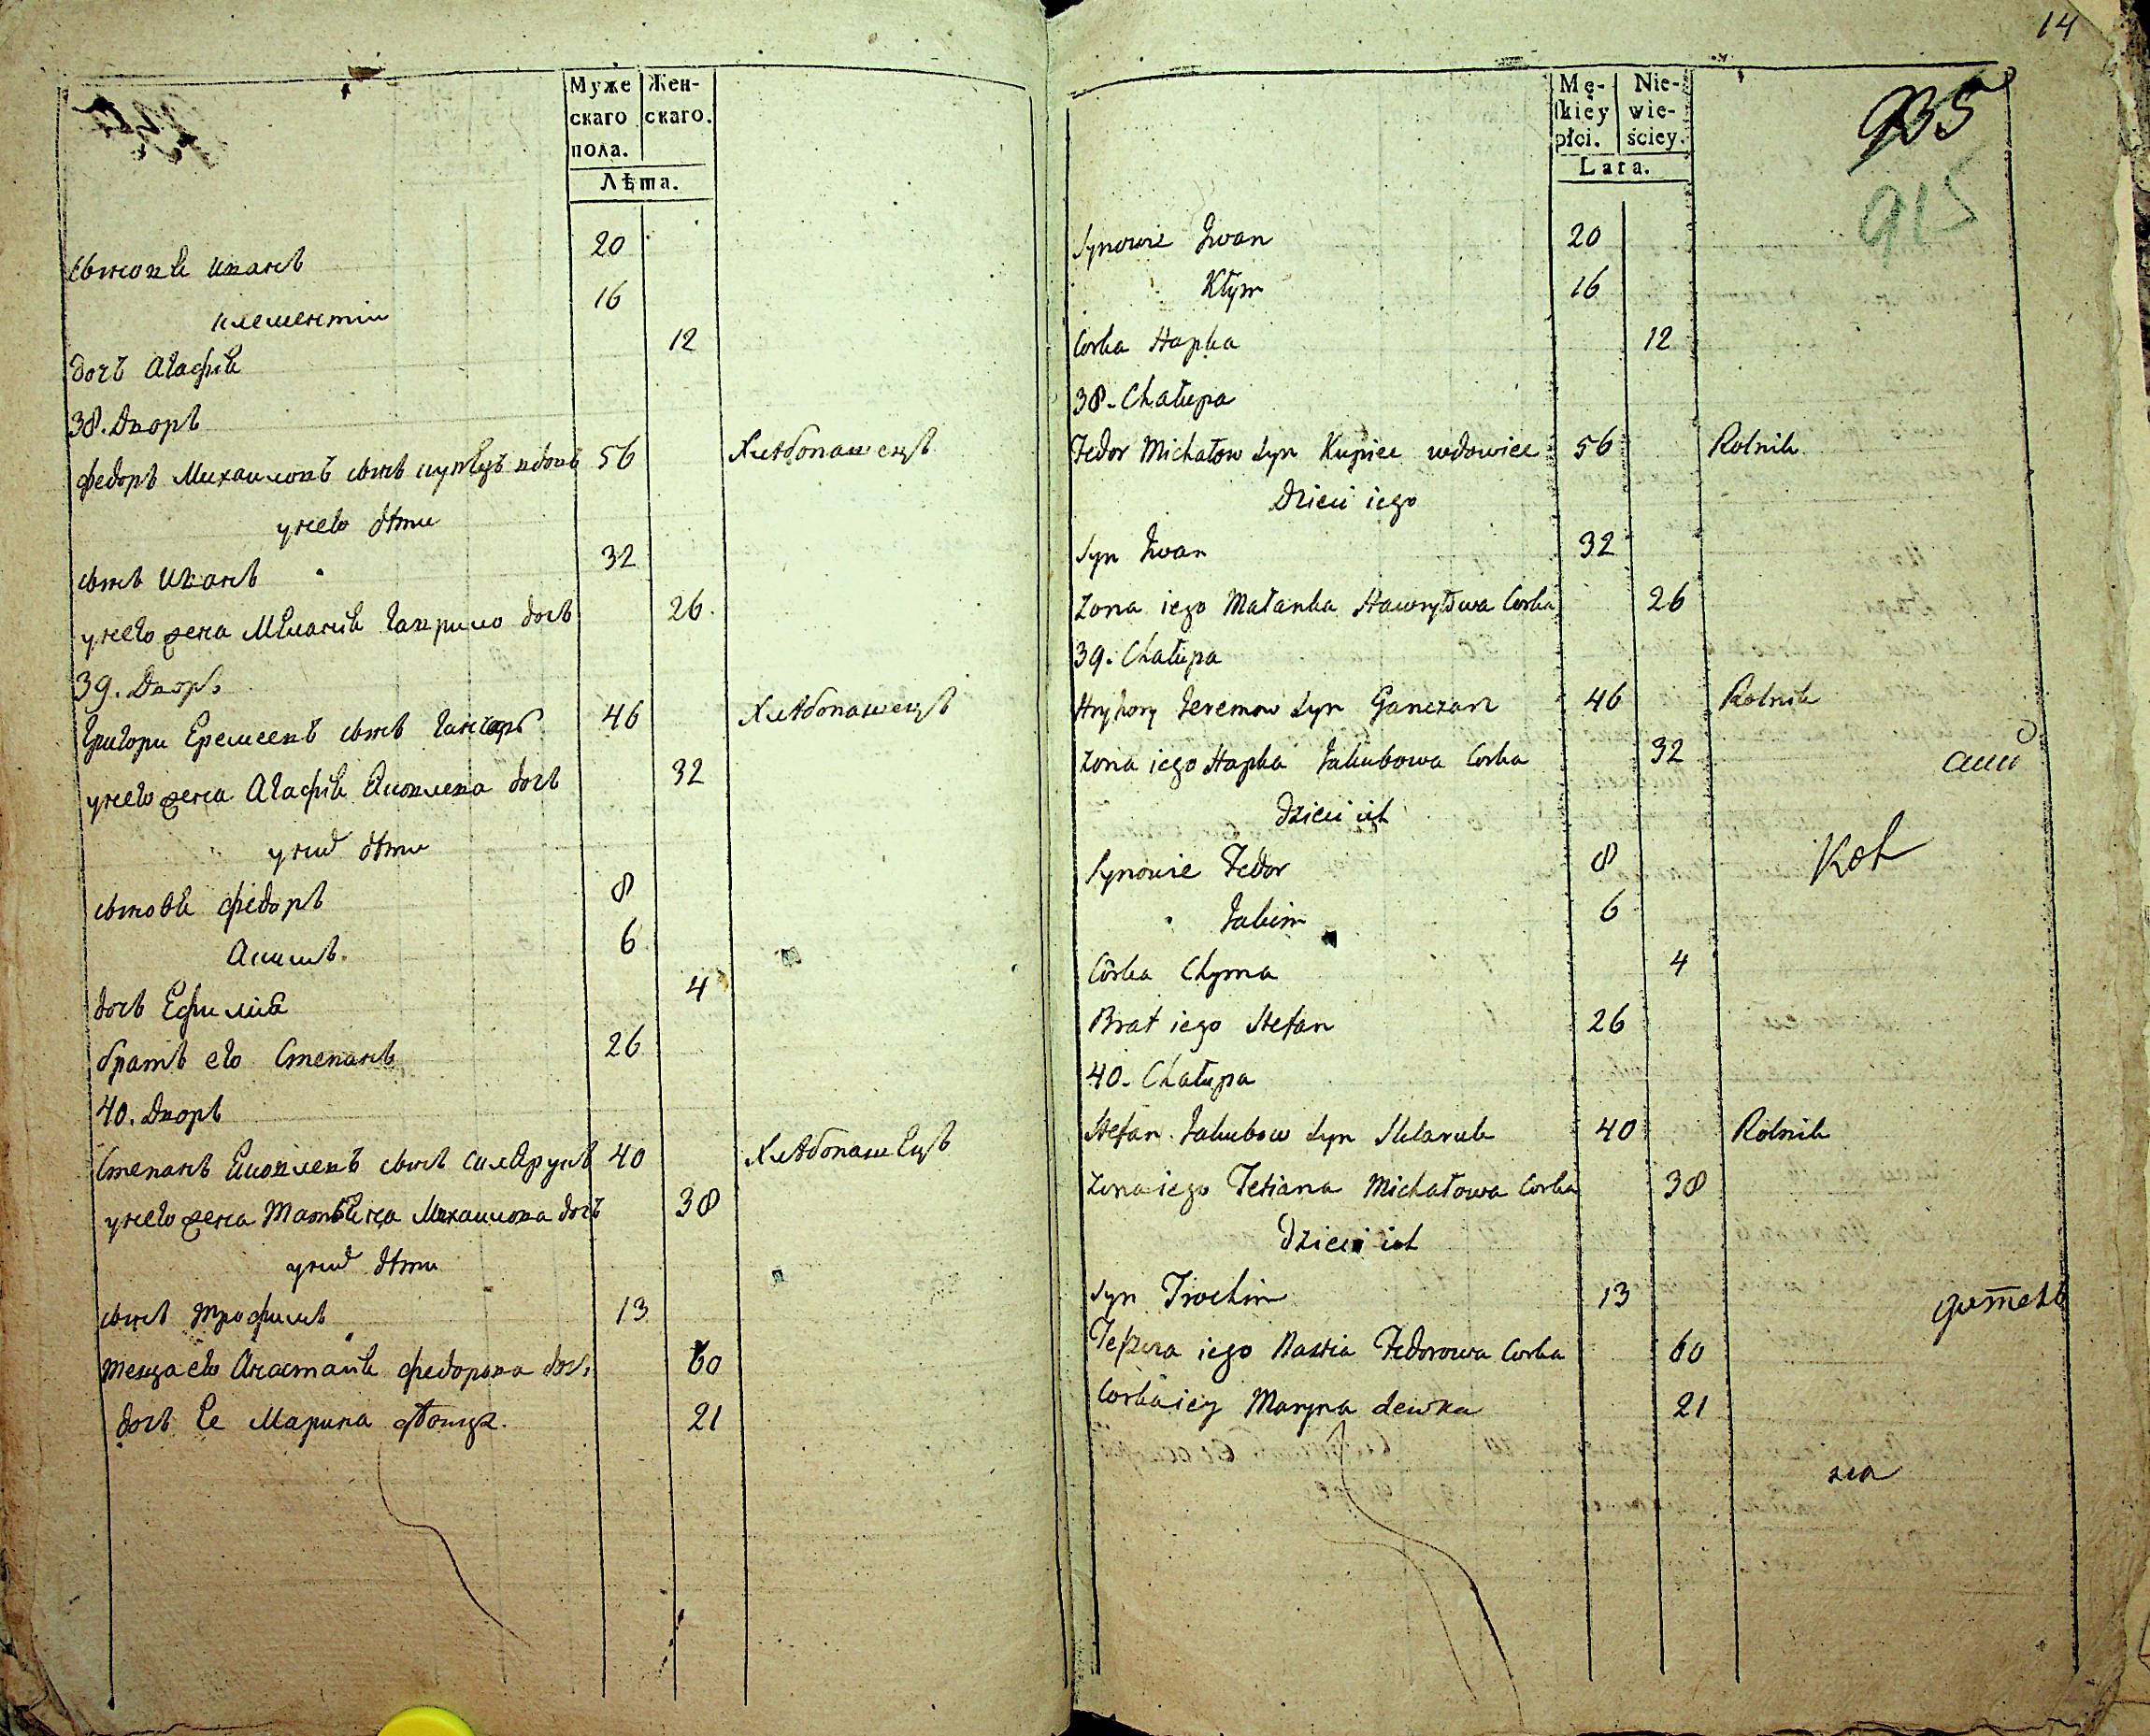 Муже Жен-
скаго скаго.
пола.
Лѣта.
сынове иванъ 20
климентии 16
дочь Агафия 12
38. Дворъ
федоръ Михаиловъ сынъ купецъ вдовъ 56 Хлѣбопашецъ
у него дѣти
сынъ Иванъ 32
у него жена Меланія Гаврило дочь 26.
39. Дворъ
Григори Еремеевъ сынъ Ганчаръ 46 Хлѣбопашецъ
у него жена Агафия Яковлева дочь 32
у них дѣти
сынове федоръ 8
Якимъ. 6
дочь Ефимия 4
братъ его Степанъ 26
40. Дворъ
Степанъ Яковлевъ сынъ склярукъ 40 Хлѣбопашецъ
у него жена Татьяна Михаилова дочь 38
у них дѣти
сынъ трофимъ 13
теща его Анастасия федорова дочь 60
дочь Ее Марина дѣвица. 21
14
Mę- Nie-
skiey wie-
płci. ściey.
Lata.
935
915
Synowie Iwan 20
Kłym 16
Corka Hapka 12
38. Chałupa
Fedor Michałow Syn Kupiec wdowiec 56 Rolnik
Dzieci iego
Syn Iwan 32
Zona iego Małanka Hawryłowa Corka 26
39. Chałupa
Hryhory Jeremow Syn Ganczarz 46 Rolnik
Zona iego Hapka Jakubowa Corka 32
Dzieci ich
Synowie Fedor 8
Jakim 6
Córka Chyma 4
Brat iego Stefan 26
40. Chałupa
Stefan Jakubow Syn Sklaruk 40 Rolnik
Zona iego Tetiana Michałowa Corka 38
Dzieci ich
Syn Trochim 13
Teszcza iego Nastia Fedorowa Corka 60
Corka iey Maryna dewka 21